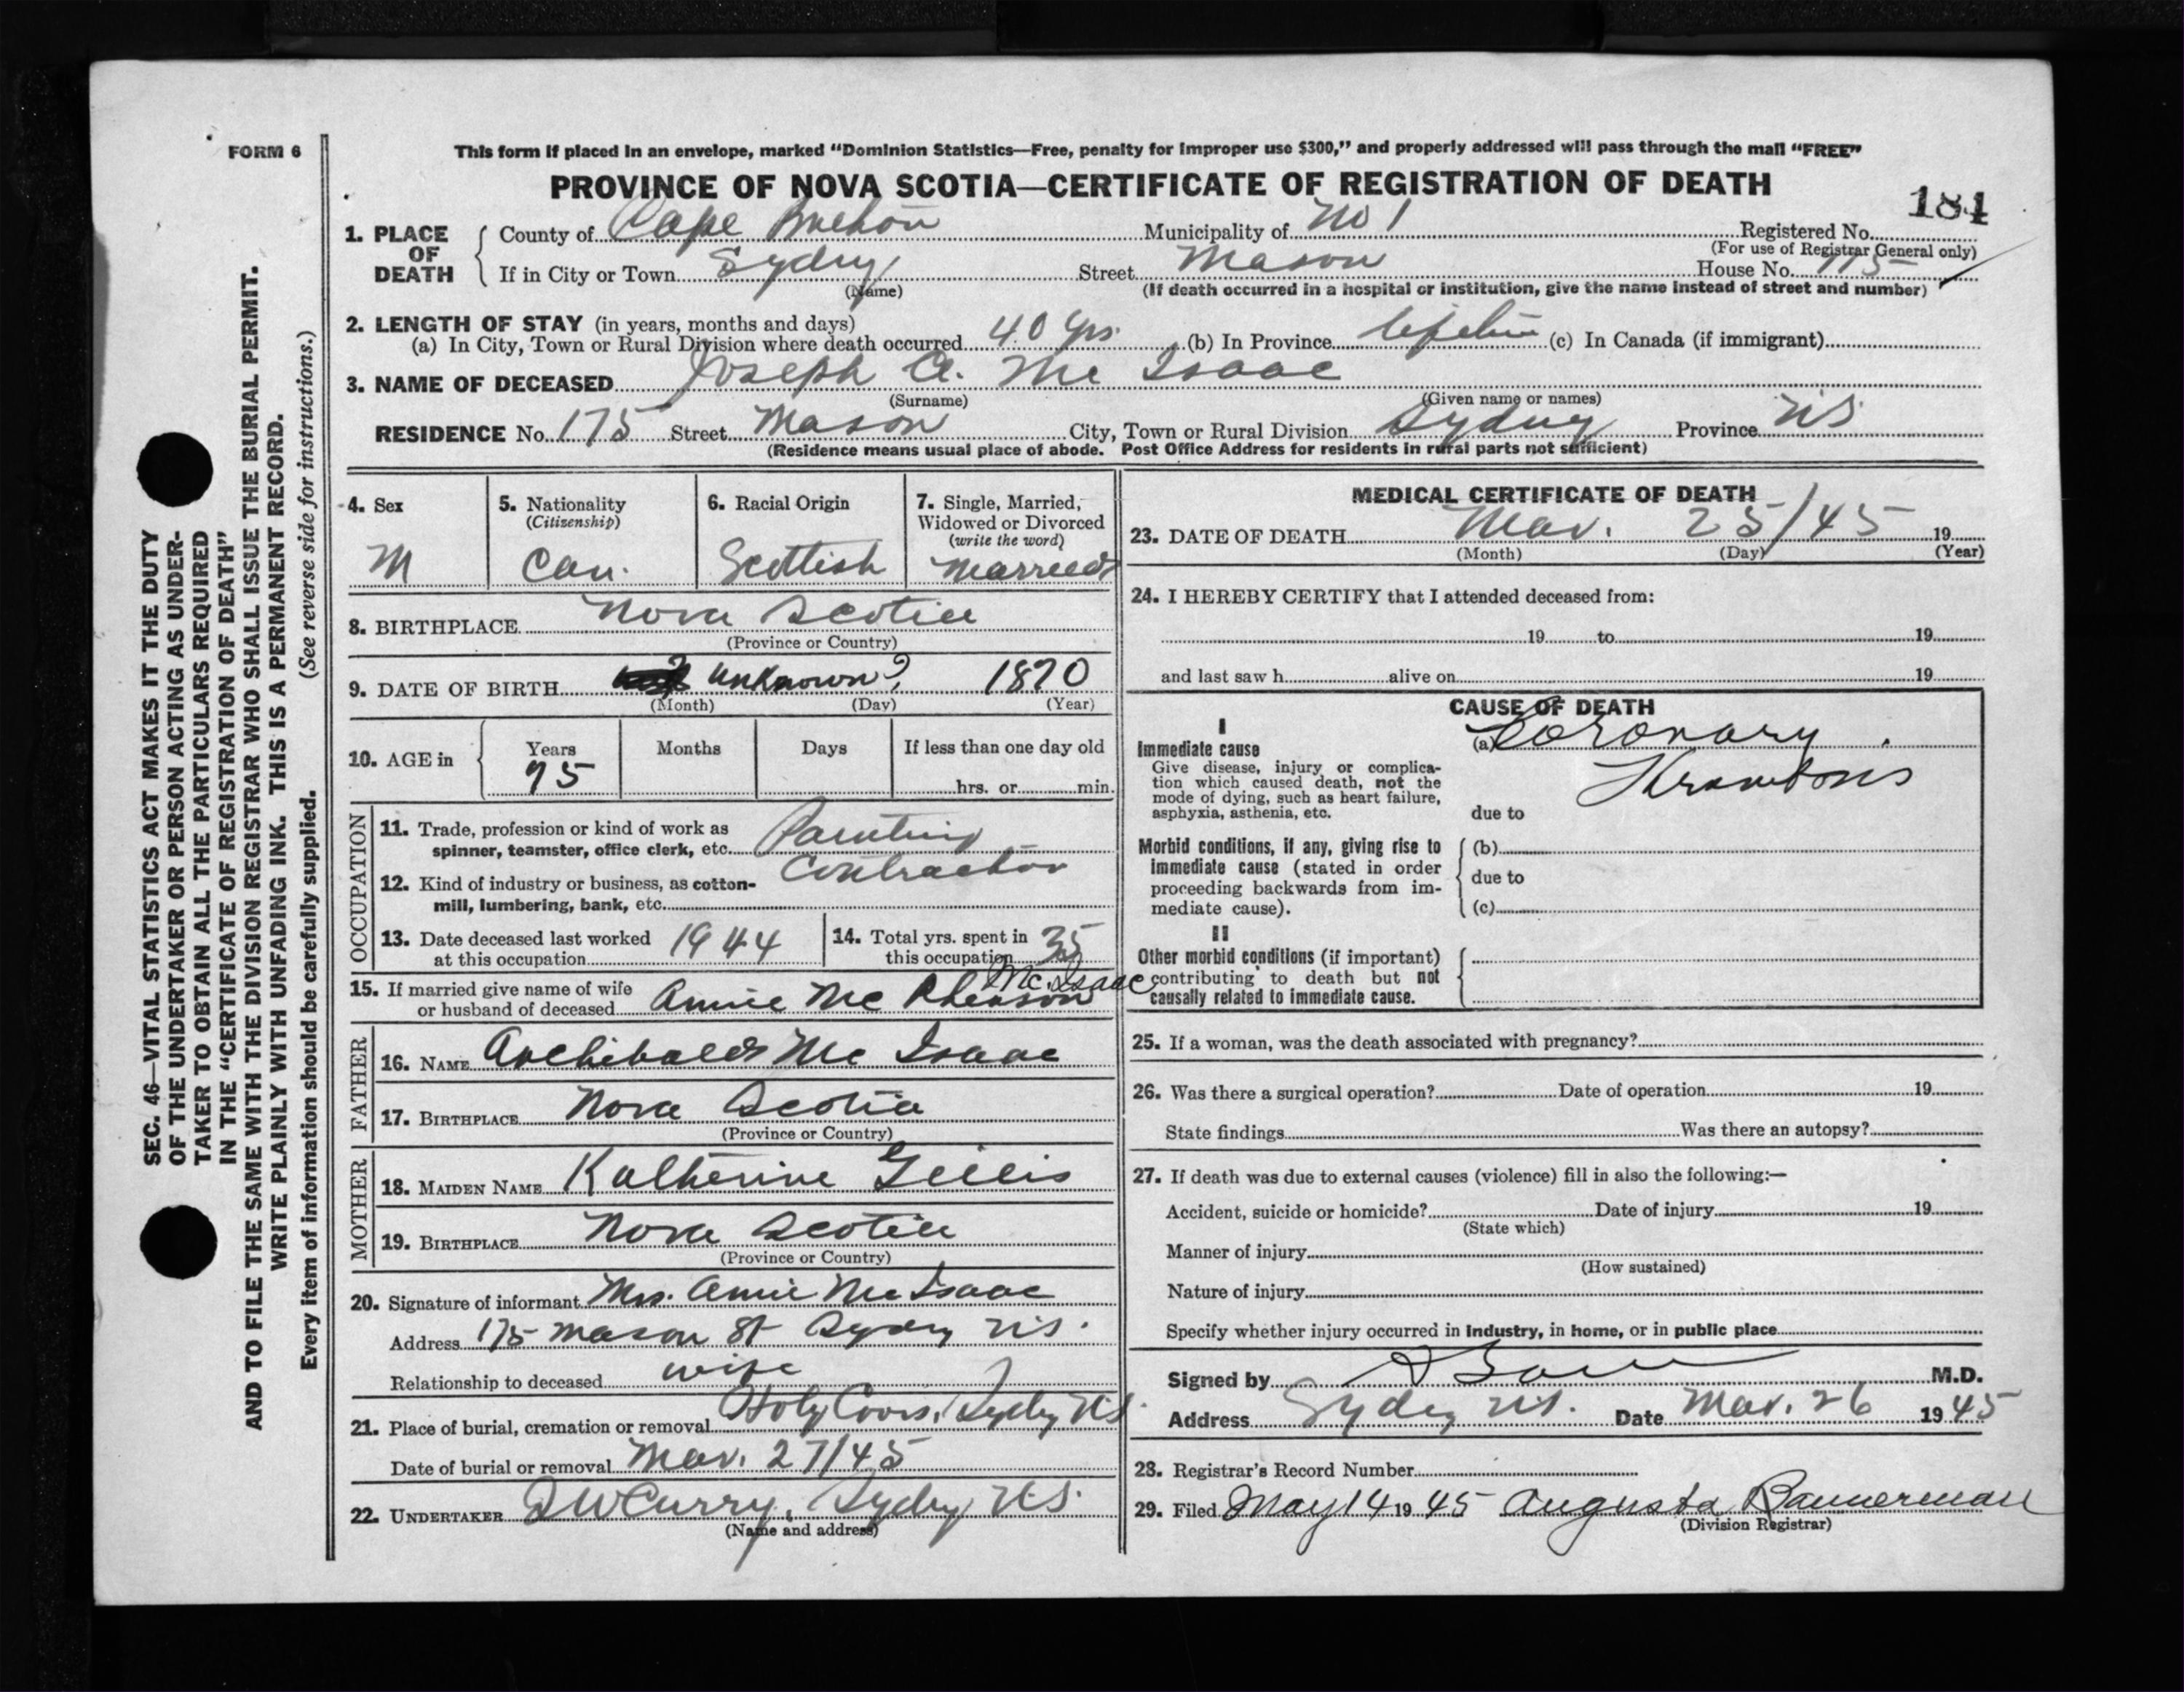 FORM 6
This form if placed in an envelope, marked "Dominion Statistics—Free, penalty for improper use $300," and properly addressed will pass through the mail "FREE"
PROVINCE OF NOVA SCOTIA—CERTIFICATE OF REGISTRATION OF DEATH
184
1. PLACE OF DEATH County of Cape Breton Municipality of No 1 Registered No.
(For use of Registrar General only)
If in City or Town Sydney Street Mason House No. 175
(Name) (If death occurred in a hospital or institution, give the name instead of street and number)
2. LENGTH OF STAY (in years, months and days)
(a) In City, Town or Rural Division where death occurred 40 yrs. (b) In Province lifetime (c) In Canada (if immigrant)
3. NAME OF DECEASED Joseph A. Mc Isaac
(Surname) (Given name or names)
RESIDENCE No. 175 Street Mason City, Town or Rural Division Sydney Province N.S.
(Residence means usual place of abode. Post Office Address for residents in rural parts not sufficient)
4. Sex
M
5. Nationality
(Citizenship)
Can.
6. Racial Origin
Scottish
7. Single, Married,
Widowed or Divorced
(write the word)
Married
8. BIRTHPLACE Nova Scotia
(Province or Country)
9. DATE OF BIRTH unknown? 1870
(Month) (Day) (Year)
10. AGE in Years Months Days If less than one day old
75 hrs. or min.
OCCUPATION
11. Trade, profession or kind of work as
spinner, teamster, office clerk, etc. Painting
Contractor
12. Kind of industry or business, as cotton-
mill, lumbering, bank, etc.
13. Date deceased last worked
at this occupation 1944
14. Total yrs. spent in
this occupation 35
15. If married give name of wife
or husband of deceased Annie Mc Pherson Mc.Isaac
FATHER
16. NAME Archibald Mc Isaac
17. BIRTHPLACE Nova Scotia
(Province or Country)
MOTHER
18. MAIDEN NAME Katherine Gillis
19. BIRTHPLACE Nova Scotia
(Province or Country)
20. Signature of informant Mrs. Annie Mc Isaac
Address 175 Mason St Sydney N.S.
Relationship to deceased wife
21. Place of burial, cremation or removal Holy Cross, Sydney N.S.
Date of burial or removal Mar. 27/45
22. UNDERTAKER Curry, Sydney N.S.
(Name and address)
MEDICAL CERTIFICATE OF DEATH
23. DATE OF DEATH Mar. 25/45 19
(Month) (Day) (Year)
24. I HEREBY CERTIFY that I attended deceased from:
19 to 19
and last saw h alive on 19
CAUSE OF DEATH
I
Immediate cause
Give disease, injury or complica-
tion which caused death, not the
mode of dying, such as heart failure,
asphyxia, asthenia, etc.
(a) Coronary
Thrombosis
due to
Morbid conditions, if any, giving rise to
immediate cause (stated in order
proceeding backwards from im-
mediate cause).
(b)
due to
(c)
II
Other morbid conditions (if important)
contributing to death but not
causally related to immediate cause.
25. If a woman, was the death associated with pregnancy?
26. Was there a surgical operation? Date of operation 19
State findings Was there an autopsy?
27. If death was due to external causes (violence) fill in also the following:—
Accident, suicide or homicide? Date of injury 19
(State which)
Manner of injury
(How sustained)
Nature of injury
Specify whether injury occurred in industry, in home, or in public place
Signed by M.D.
Address Sydney N.S. Date Mar. 26 1945
28. Registrar's Record Number
29. Filed May 14 1945 Augusta Bannerman
(Division Registrar)
SEC. 46—VITAL STATISTICS ACT MAKES IT THE DUTY
OF THE UNDERTAKER OR PERSON ACTING AS UNDER-
TAKER TO OBTAIN ALL THE PARTICULARS REQUIRED
IN THE "CERTIFICATE OF REGISTRATION OF DEATH"
AND TO FILE THE SAME WITH THE DIVISION REGISTRAR WHO SHALL ISSUE THE BURIAL PERMIT.
WRITE PLAINLY WITH UNFADING INK. THIS IS A PERMANENT RECORD.
Every item of information should be carefully supplied. (See reverse side for instructions.)